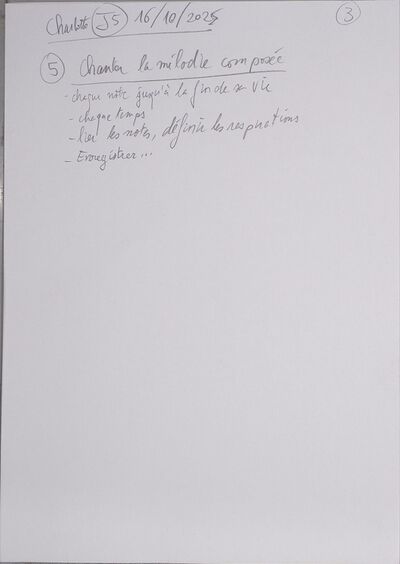 Charlotte J5 16/10/2025 3
5 Chanter la mélodie composée
- chaque note jusqu'à la fin de sa vie
- chaque temps
- lier les notes, définir les respirations
- Enregistrer...